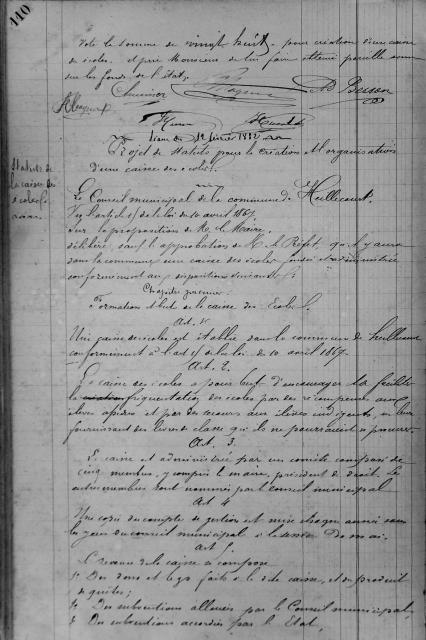 110
Vote la somme de vingt huit f. pour création d'une caisse
des écoles, et prie Monsieur de lui faire obtenir pareille somme
sur les fonds de l'état.
Séance du 12 février 1882
Statuts de
la caisse des
écoles
Projet de statuts pour la création et l'organisation
d'une caisse des écoles.
Le Conseil municipal de la commune de Heillecourt,
Vu l'article 15 de la loi du 10 avril 1867,
Sur la proposition de M. le Maire,
délibère, sauf l'approbation de M. le Préfet, qu'il y aura
dans la commune une caisse des écoles fondée et administrée
conformément aux dispositions suivantes :
Chapitre premier.
Formation et but de la caisse des Écoles.
Art. 1er
Une caisse des écoles est établie dans la commune de
conformément à l'art 15 de la loi du 10 avril 1867.
Art. 2.
La caisse des écoles a pour but d'encourager la
la fréquentation des écoles par des récompenses aux
élèves assidus et par des secours aux élèves indigents, en leur
fournissant des livres de classe qu'ils ne pourraient se procurer.
Art. 3.
La caisse est administrée par un comité composé de
cinq membres, y compris le maire, président de droit. Les
autres membres sont nommés par le conseil municipal
Art 4
Une copie du compte de gestion est mise chaque année sous
les yeux du conseil municipal à la session de mai.
Art 5.
Le revenu de la caisse se compose
1° Des dons et legs faits à la dite caisse, et du produit
de quêtes ;
2° Des subventions allouées par le Conseil municipal,
3° Des subventions accordées par l'Etat,